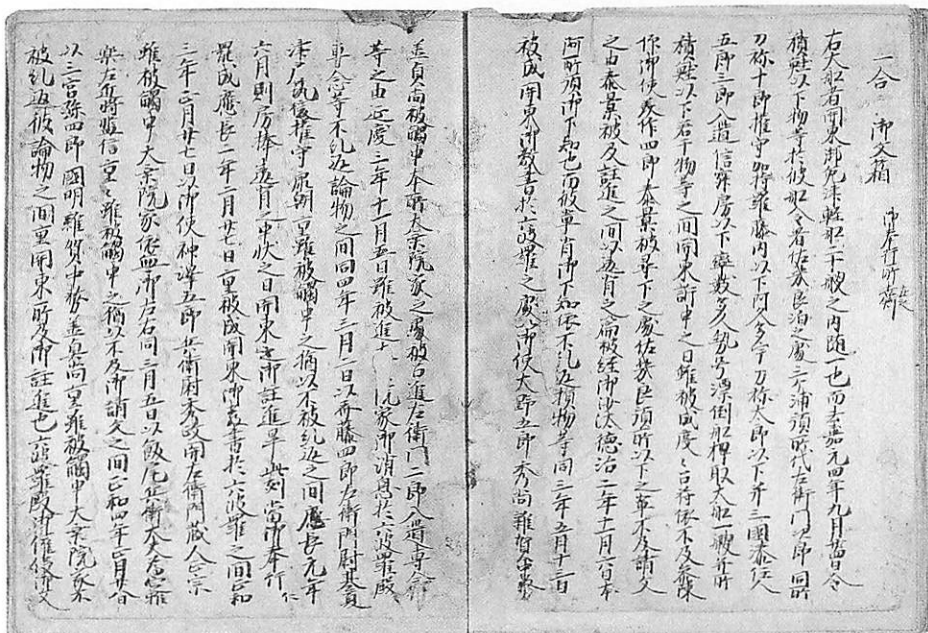 一合　御文箱　御奉行所賦
右大船者関東御免津軽船二十艘之内随一也而去嘉元四年九月廿四日令
積鮭以下物等於彼船令着佐幾良泊之処三ケ浦預所代左衛門次郎同所
刀祢十郎権守加持羅藤内以下阿久多宇刀祢大郎以下并三国湊住人
五郎三郎入道信寂房以下率数多人勢号漂倒船押取大船一艘并所
積鮭以下若干物等之間関東訴申之日雖被成度々召符依不及参陳
作四郎泰業被尋下之処佐幾良預所以下之輩不及請文
之由泰業被及註進之間以違背之篇被経御沙汰徳治二年十一月六日本
阿預御下知也而彼輩背御下知依不糺返損物等同三年五月十二日
被成関東御教書於六波羅之処以御使大野五郎秀尚雑賀中務
並貞尚被触申本所大乗院家之処被召進左衛門二郎入道専念
等之由延慶二年十一月五日雖被進　院家御消息於六波羅殿
専念等不糺返論物之間同四年三月二日以斎藤四郎左衛門尉基貞
権守　重雖被触申之猶以不被糺返之間応長元年
六月　則房捧違背之申状之日関東　御註進畢此刻当御奉行仁
罷成応長二年二月廿七日重被成関東御教書於六波羅之間正和
三年正月廿七日以御使神沢五郎兵衛尉秀政関左衛門蔵人正宗
雖被触申大乗院家依無御左右同三月五日以飯尾兵衛大夫為定
信重重雖被触申之猶以不及御請文之間正和四年正月
以三宮孫四郎国明雑賀中務並貞尚重雖被触申大乗院家不
被糺返彼論物之間重関東所及御註進也六波羅殿御催促請文